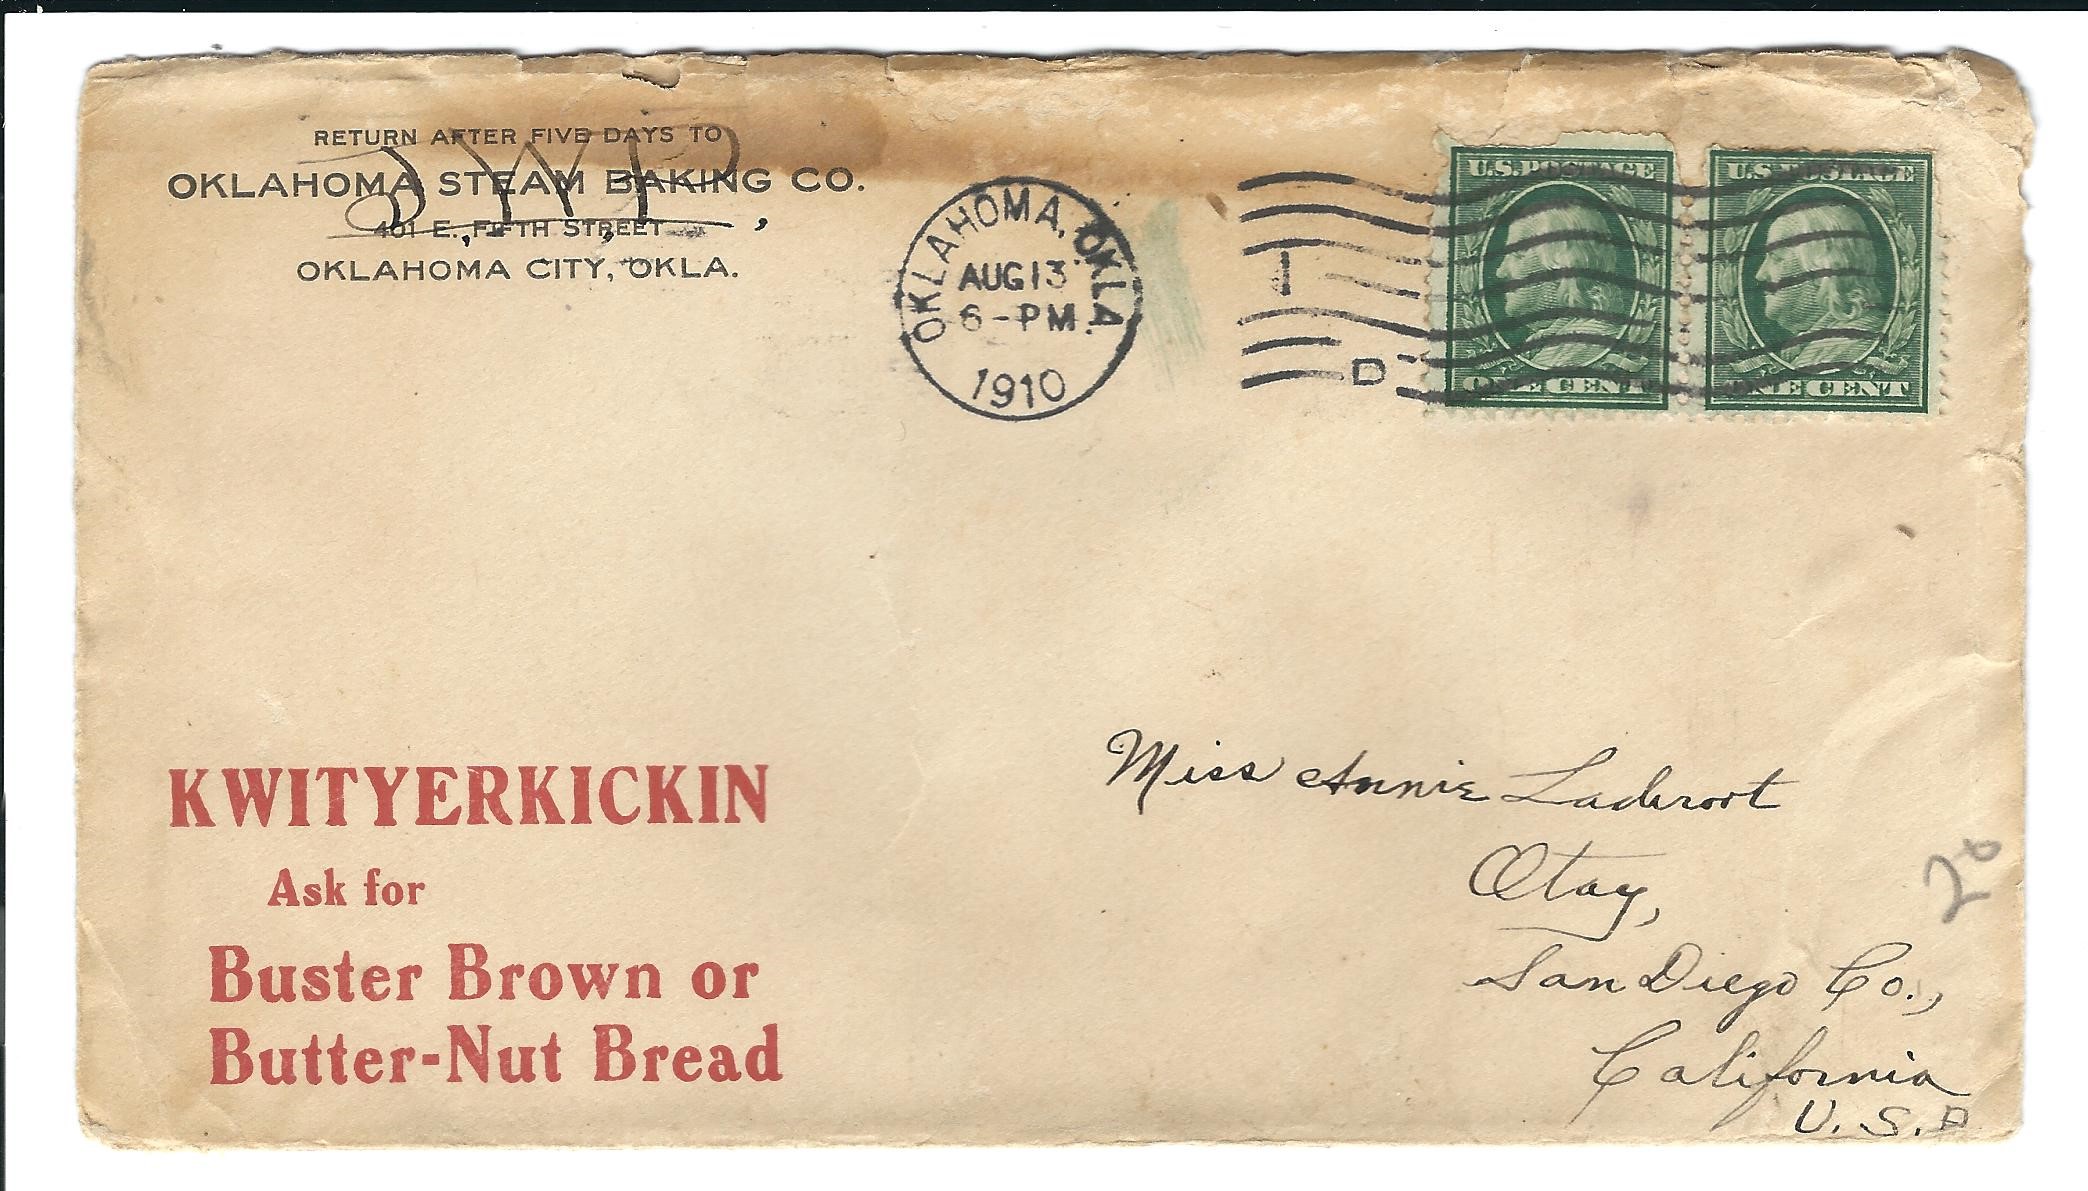 RETURN AFTER FIVE DAYS TO
OKLAHOMA STEAM BAKING CO.
401 E. FIFTH STREET
OKLAHOMA CITY, OKLA.
OKLAHOMA, OKLA.
AUG 13
6-PM
1910
1
D
U.S. POSTAGE
ONE CENT
U.S. POSTAGE
ONE CENT
KWITYERKICKIN
Ask for
Buster Brown or
Butter-Nut Bread
Miss Annie
Otay,
San Diego Co.,
California
U.S.A
20